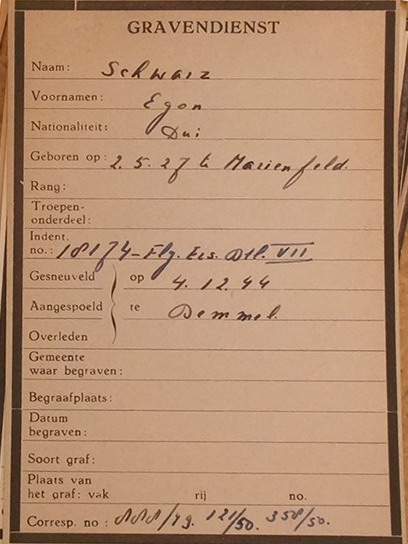 GRAVENDIENST
Naam: Schwarz
Voornamen: Egon
Nationaliteit: Dui
Geboren op: 2.5.27 te Marienfeld.
Rang:
Troepen-
onderdeel:
Indent.
no.: 18174-Flg. Ers. Btl. VII
Gesneuveld op 4.12.44
Aangespoeld te Demmel.
Overleden
Gemeente
waar begraven:
Begraafplaats:
Datum
begraven:
Soort graf:
Plaats van
het graf: vak rij no.
Corresp. no: 888/49. 121/50. 358/50.